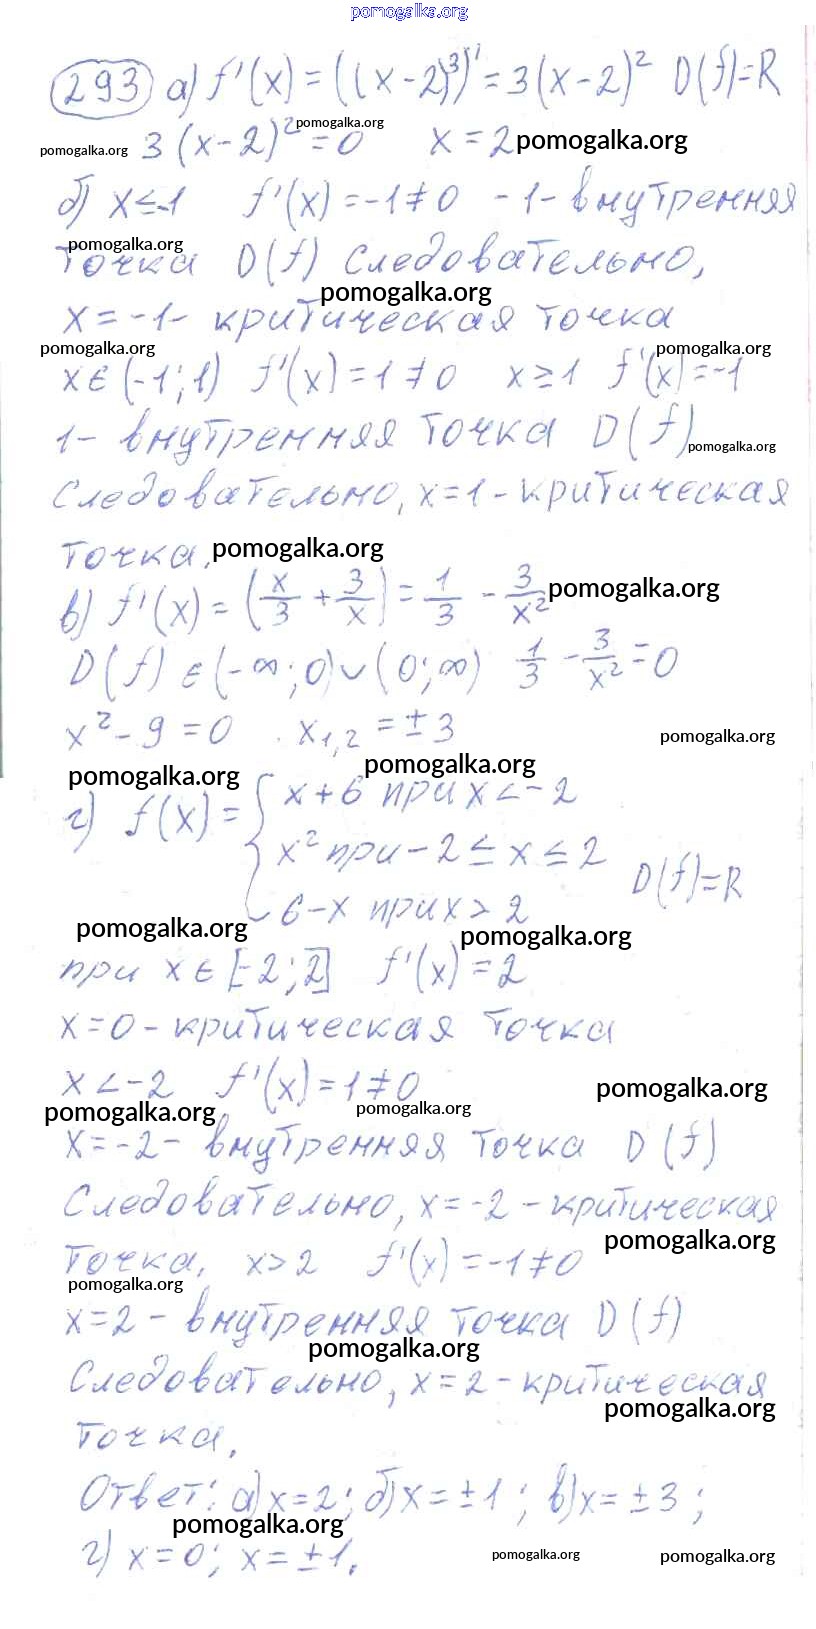 pomogalka.org
293 а) f'(x) = ((x-2)³)' = 3(x-2)² D(f)=R
pomogalka.org
3(x-2)² = 0 x = 2 pomogalka.org
pomogalka.org
б) x ≤ -1 f'(x) = -1 ≠ 0 -1 - внутренняя
pomogalka.org
точка D(f) Следовательно,
pomogalka.org
x = -1 - критическая точка
pomogalka.org pomogalka.org
x ∈ (-1; 1) f'(x) = 1 ≠ 0 x ≥ 1 f'(x) = -1
1 - внутренняя точка D(f)
pomogalka.org
Следовательно, x = 1 - критическая
точка. pomogalka.org
в) f'(x) = (x/3 + 3/x)' = 1/3 - 3/x² pomogalka.org
D(f) ∈ (-∞; 0) ∪ (0; ∞) 1/3 - 3/x² = 0
x² - 9 = 0 x₁,₂ = ± 3 pomogalka.org
pomogalka.org pomogalka.org
г) f(x) = { x + 6 при x < -2
x² при -2 ≤ x ≤ 2
D(f) = R
6 - x при x > 2
pomogalka.org pomogalka.org
при x ∈ [-2; 2] f'(x) = 2
x = 0 - критическая точка
x < -2 f'(x) = 1 ≠ 0 pomogalka.org
pomogalka.org pomogalka.org
x = -2 - внутренняя точка D(f)
Следовательно, x = -2 - критическая
pomogalka.org
точка, x > 2 f'(x) = -1 ≠ 0
pomogalka.org
x = 2 - внутренняя точка D(f)
pomogalka.org
Следовательно, x = 2 - критическая
pomogalka.org
точка.
Ответ: а) x = 2; б) x = ± 1; в) x = ± 3;
pomogalka.org
г) x = 0; x = ± 1.
pomogalka.org pomogalka.org